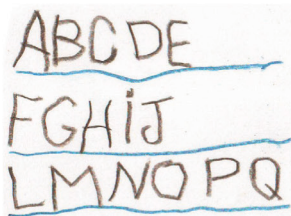 ABCDE
FGHiJ
LMNOPQ